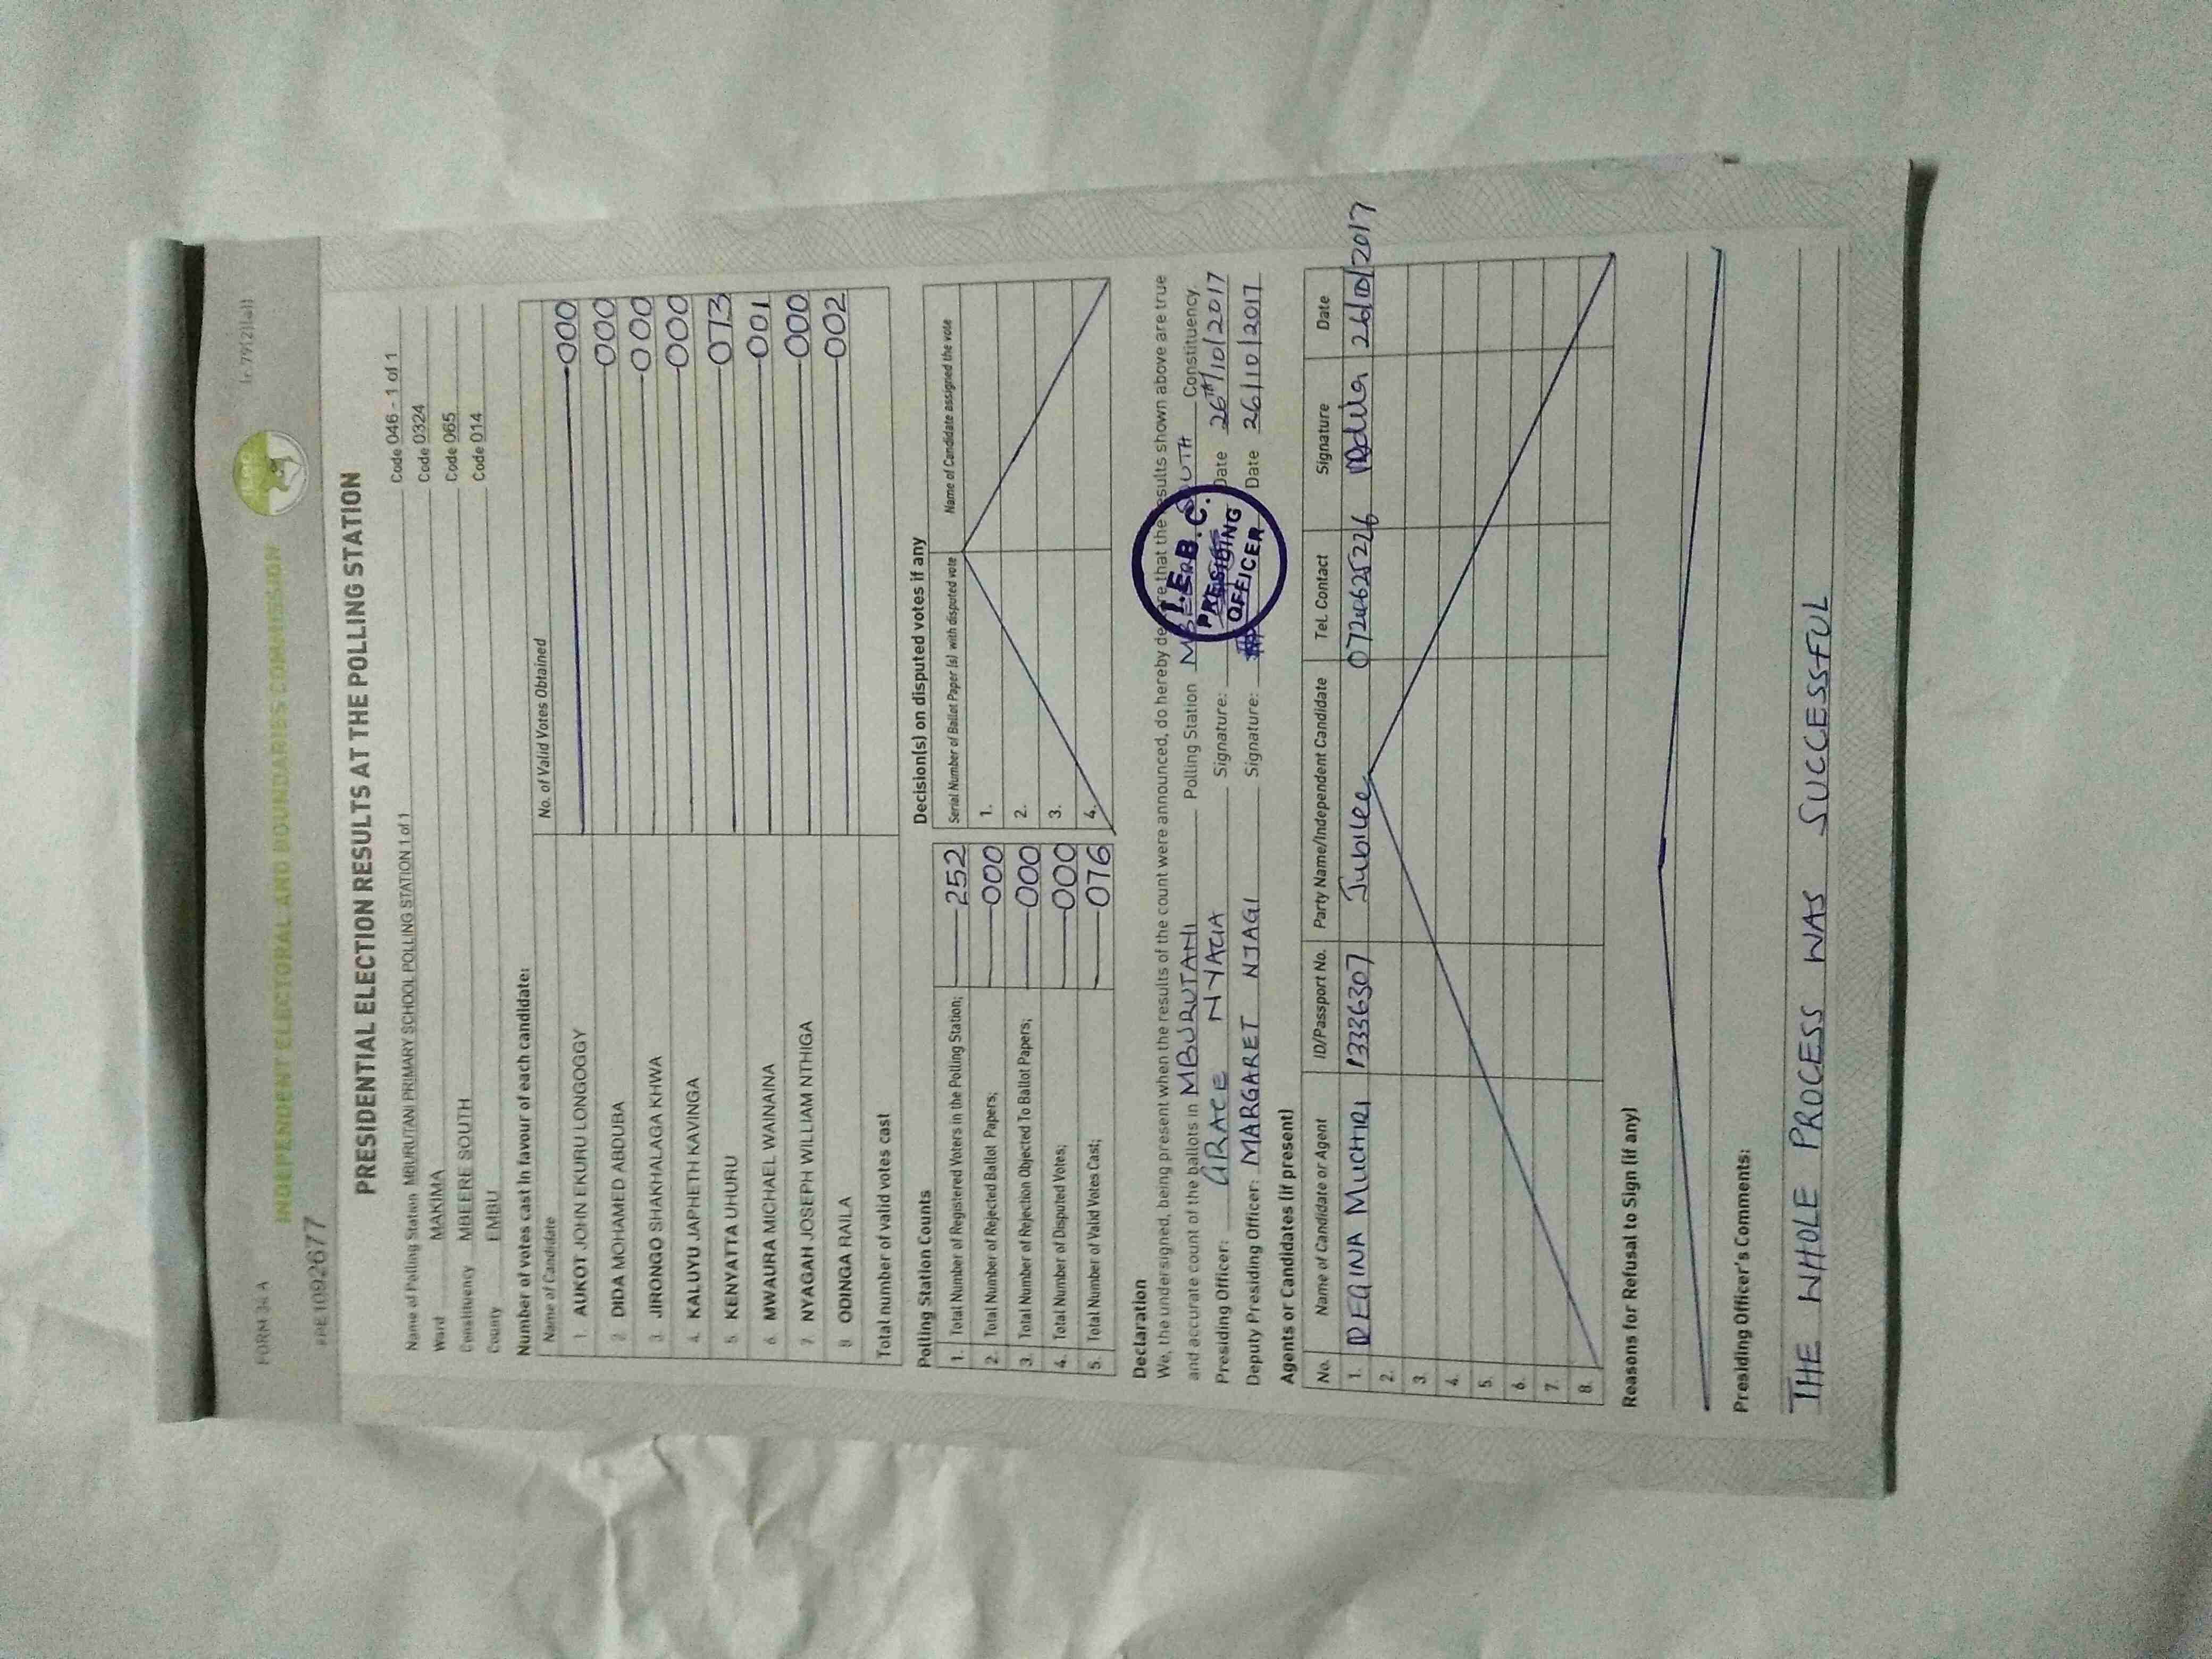 FORM 34 A
r. 79(2)(a))
IEBC
INDEPENDENT ELECTORAL AND BOUNDARIES COMMISSION
PRE1092677
PRESIDENTIAL ELECTION RESULTS AT THE POLLING STATION
Name of Polling Station MBURUTANI PRIMARY SCHOOL POLLING STATION 1 of 1 Code 046 - 1 of 1
Ward MAKIMA Code 0324
Constituency MBEERE SOUTH Code 065
County EMBU Code 014
Number of votes cast in favour of each candidate:
Name of Candidate No. of Valid Votes Obtained
1. AUKOT JOHN EKURU LONGOGGY 000
2. DIDA MOHAMED ABDUBA 000
3. JIRONGO SHAKHALAGA KHWA 000
4. KALUYU JAPHETH KAVINGA 000
5. KENYATTA UHURU 073
6. MWAURA MICHAEL WAINAINA 001
7. NYAGAH JOSEPH WILLIAM NTHIGA 000
8 ODINGA RAILA 002
Total number of valid votes cast
Polling Station Counts
1. Total Number of Registered Voters in the Polling Station; 252
2. Total Number of Rejected Ballot Papers; 000
3. Total Number of Rejection Objected To Ballot Papers; 000
4. Total Number of Disputed Votes; 000
5. Total Number of Valid Votes Cast; 076
Decision(s) on disputed votes if any
Serial Number of Ballot Paper (s) with disputed vote Name of Candidate assigned the vote
1.
2.
3.
4.
Declaration
We, the undersigned, being present when the results of the count were announced, do hereby declare that the results shown above are true
and accurate count of the ballots in MBURUTANI Polling Station MBEERE SOUTH Constituency.
Presiding Officer: GRACE Signature: Date 26th/10/2017
Deputy Presiding Officer: MARGARET NJAGI Signature: Date 26/10/2017
I.E.B.C.
PRESIDING
OFFICER
Agents or Candidates (if present)
No. Name of Candidate or Agent ID/Passport No. Party Name/Independent Candidate Tel. Contact Signature Date
1. REGINA MUCHIRI 13336307 Jubilee 26/10/2017
2.
3.
4.
5.
6.
7.
8.
Reasons for Refusal to Sign (if any)
Presiding Officer's Comments:
THE WHOLE PROCESS WAS SUCCESSFUL